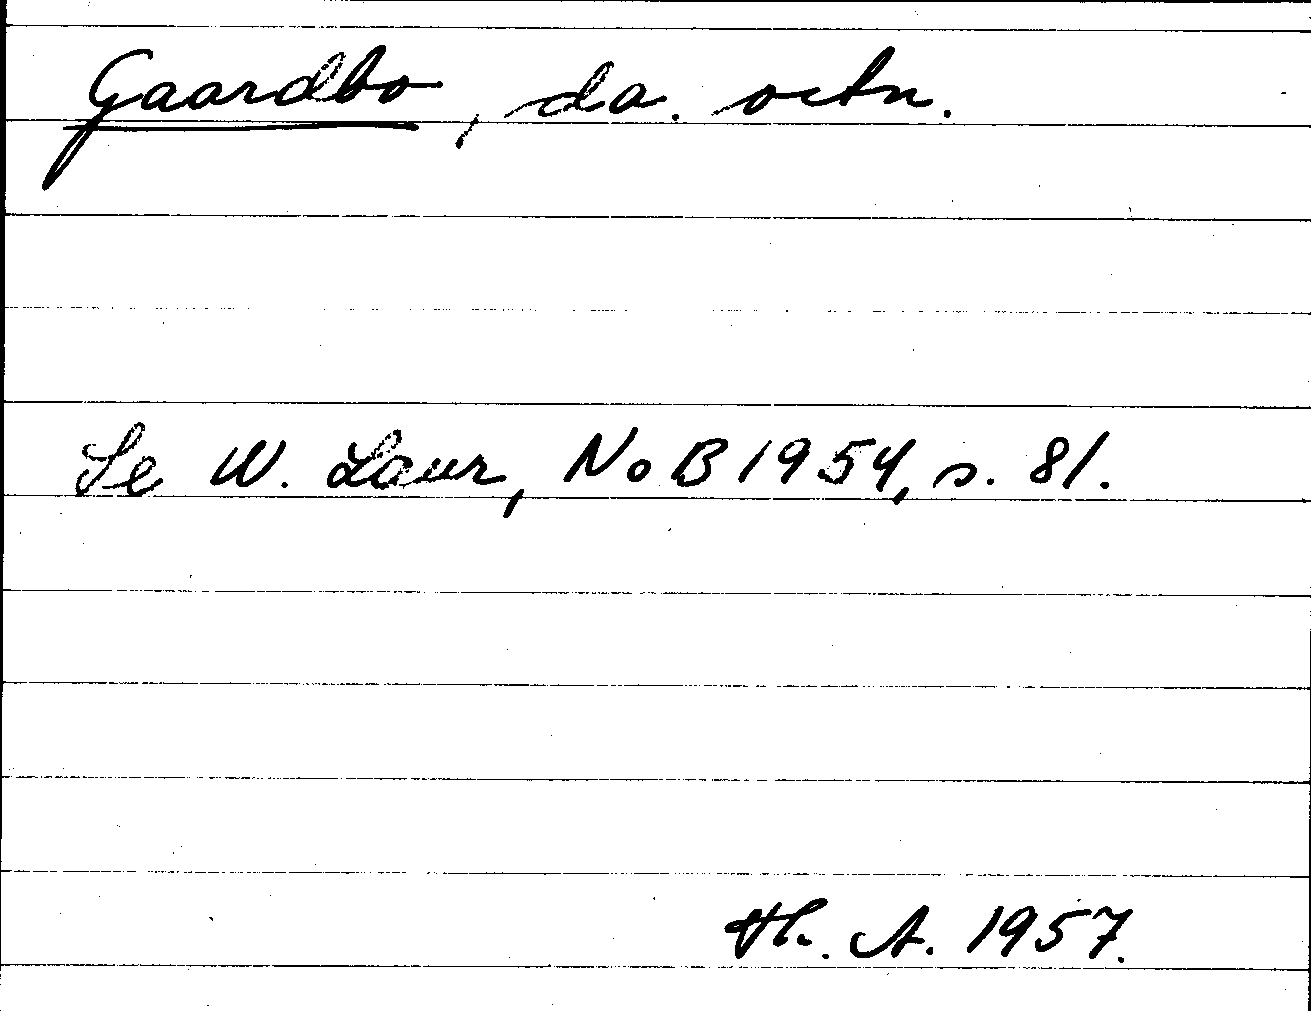 Gaardbo, da. ortn.
Se W. Laur, NoB 1954, s. 81.
Hl. A. 1957.